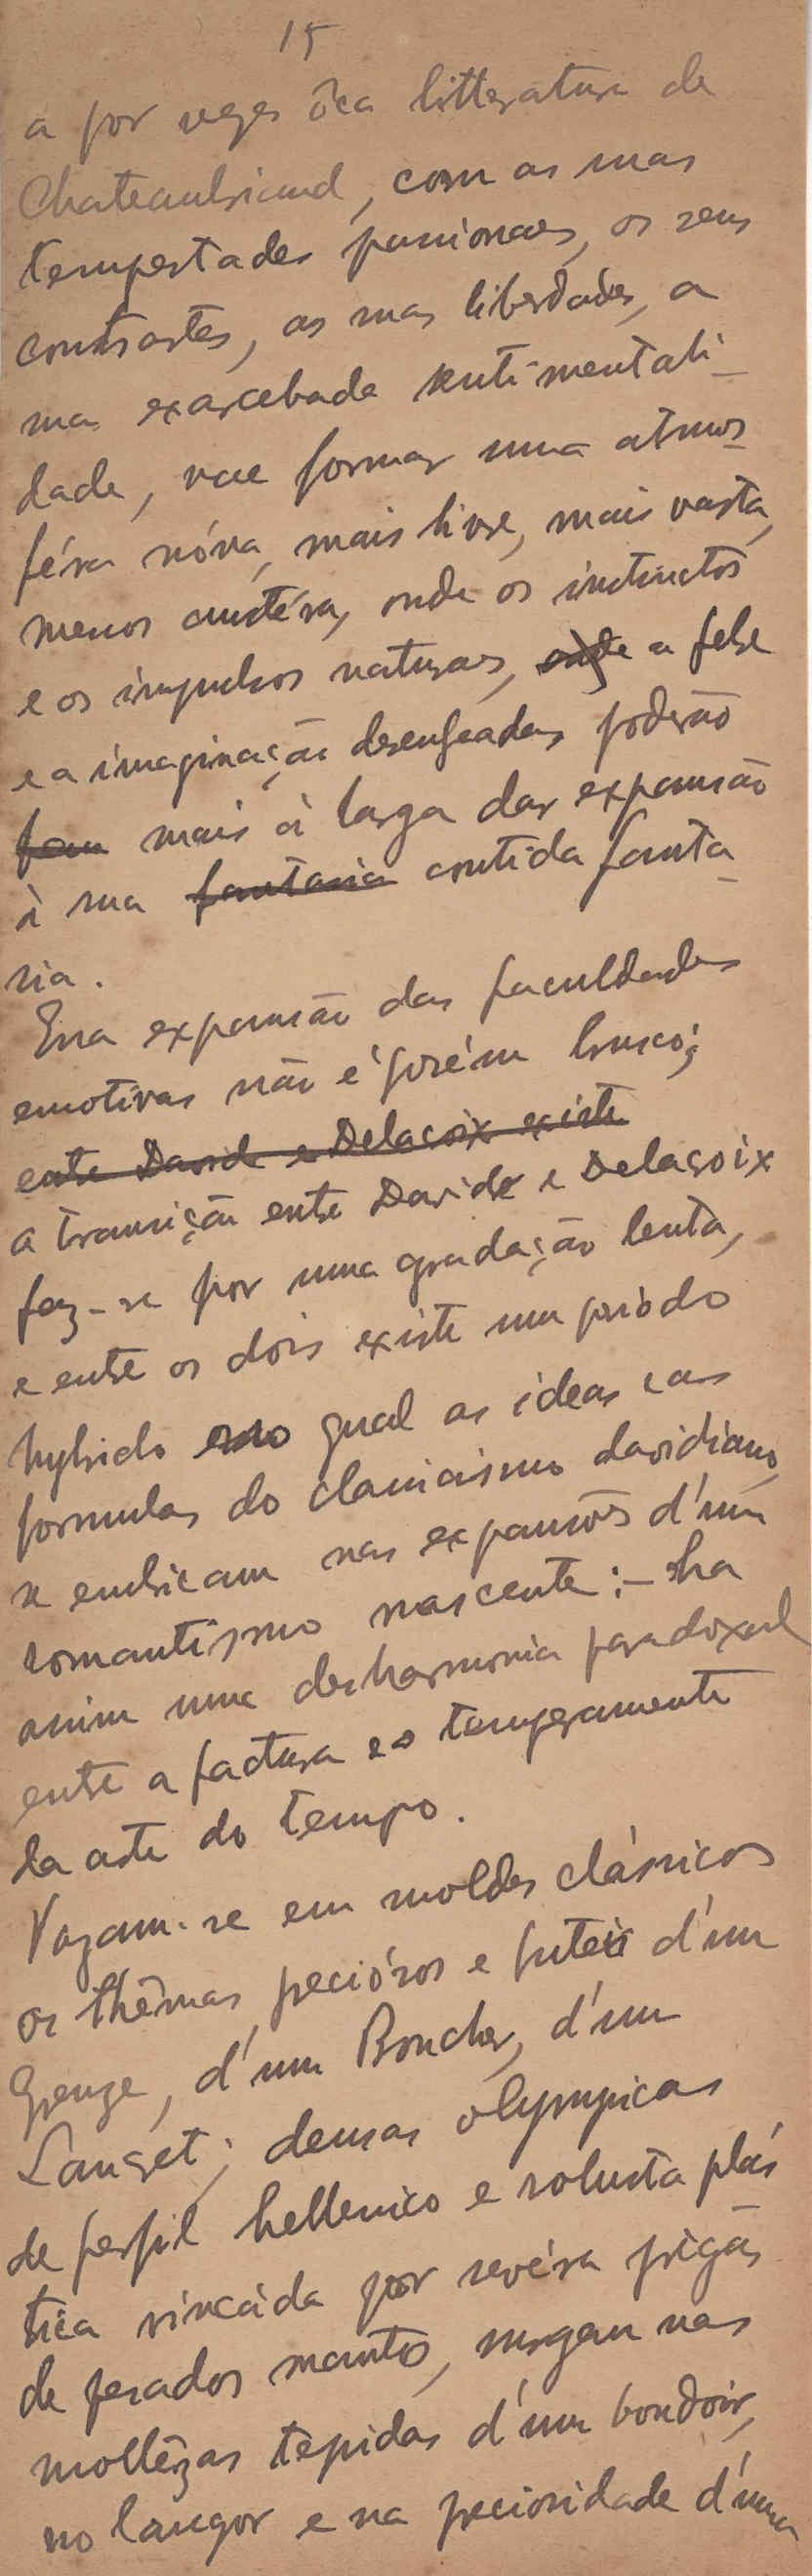 15
a por vezes ôca litteratura de
Chateaubriand, com as suas
tempestades passionaes, os seus
contrastes, as suas liberdades, a
sua exarcebada sentimentali-
dade, vae formar uma atmos-
féra nóva, mais livre, mais vasta,
menos austéra, onde os instinctos
e os impulsos naturaes, onde a febre
e a imaginação desenfreadas poderão
fan mais à larga dar expansão
à sua fantasia contida fanta-
sia.
Essa expansão das faculdades
emotivas não é porém brusca;
entre David e Delacroix existe
a transição entre David e Delacroix
faz-se por uma gradação lenta,
e entre os dois existe um periodo
hybrido no qual as ideas e as
formulas do classicismo davidiano,
se embricam nas expansões d'um
romantismo nascente: - ha
assim uma desharmonia paradoxal
entre a factura e o temperamento
da arte do tempo.
Vazam-se em moldes clássicos
os thêmas preciósos e futeis d'um
Greuze, d'um Boucher, d'um
Lancret; deusas olympicas
de perfil hellenico e robusta plás
tica vincáda por sevéra prégas
de pesados mantos, surgem nas
mollêzas tepidas d'um boudoir,
no langor e na preciosidade d'uma